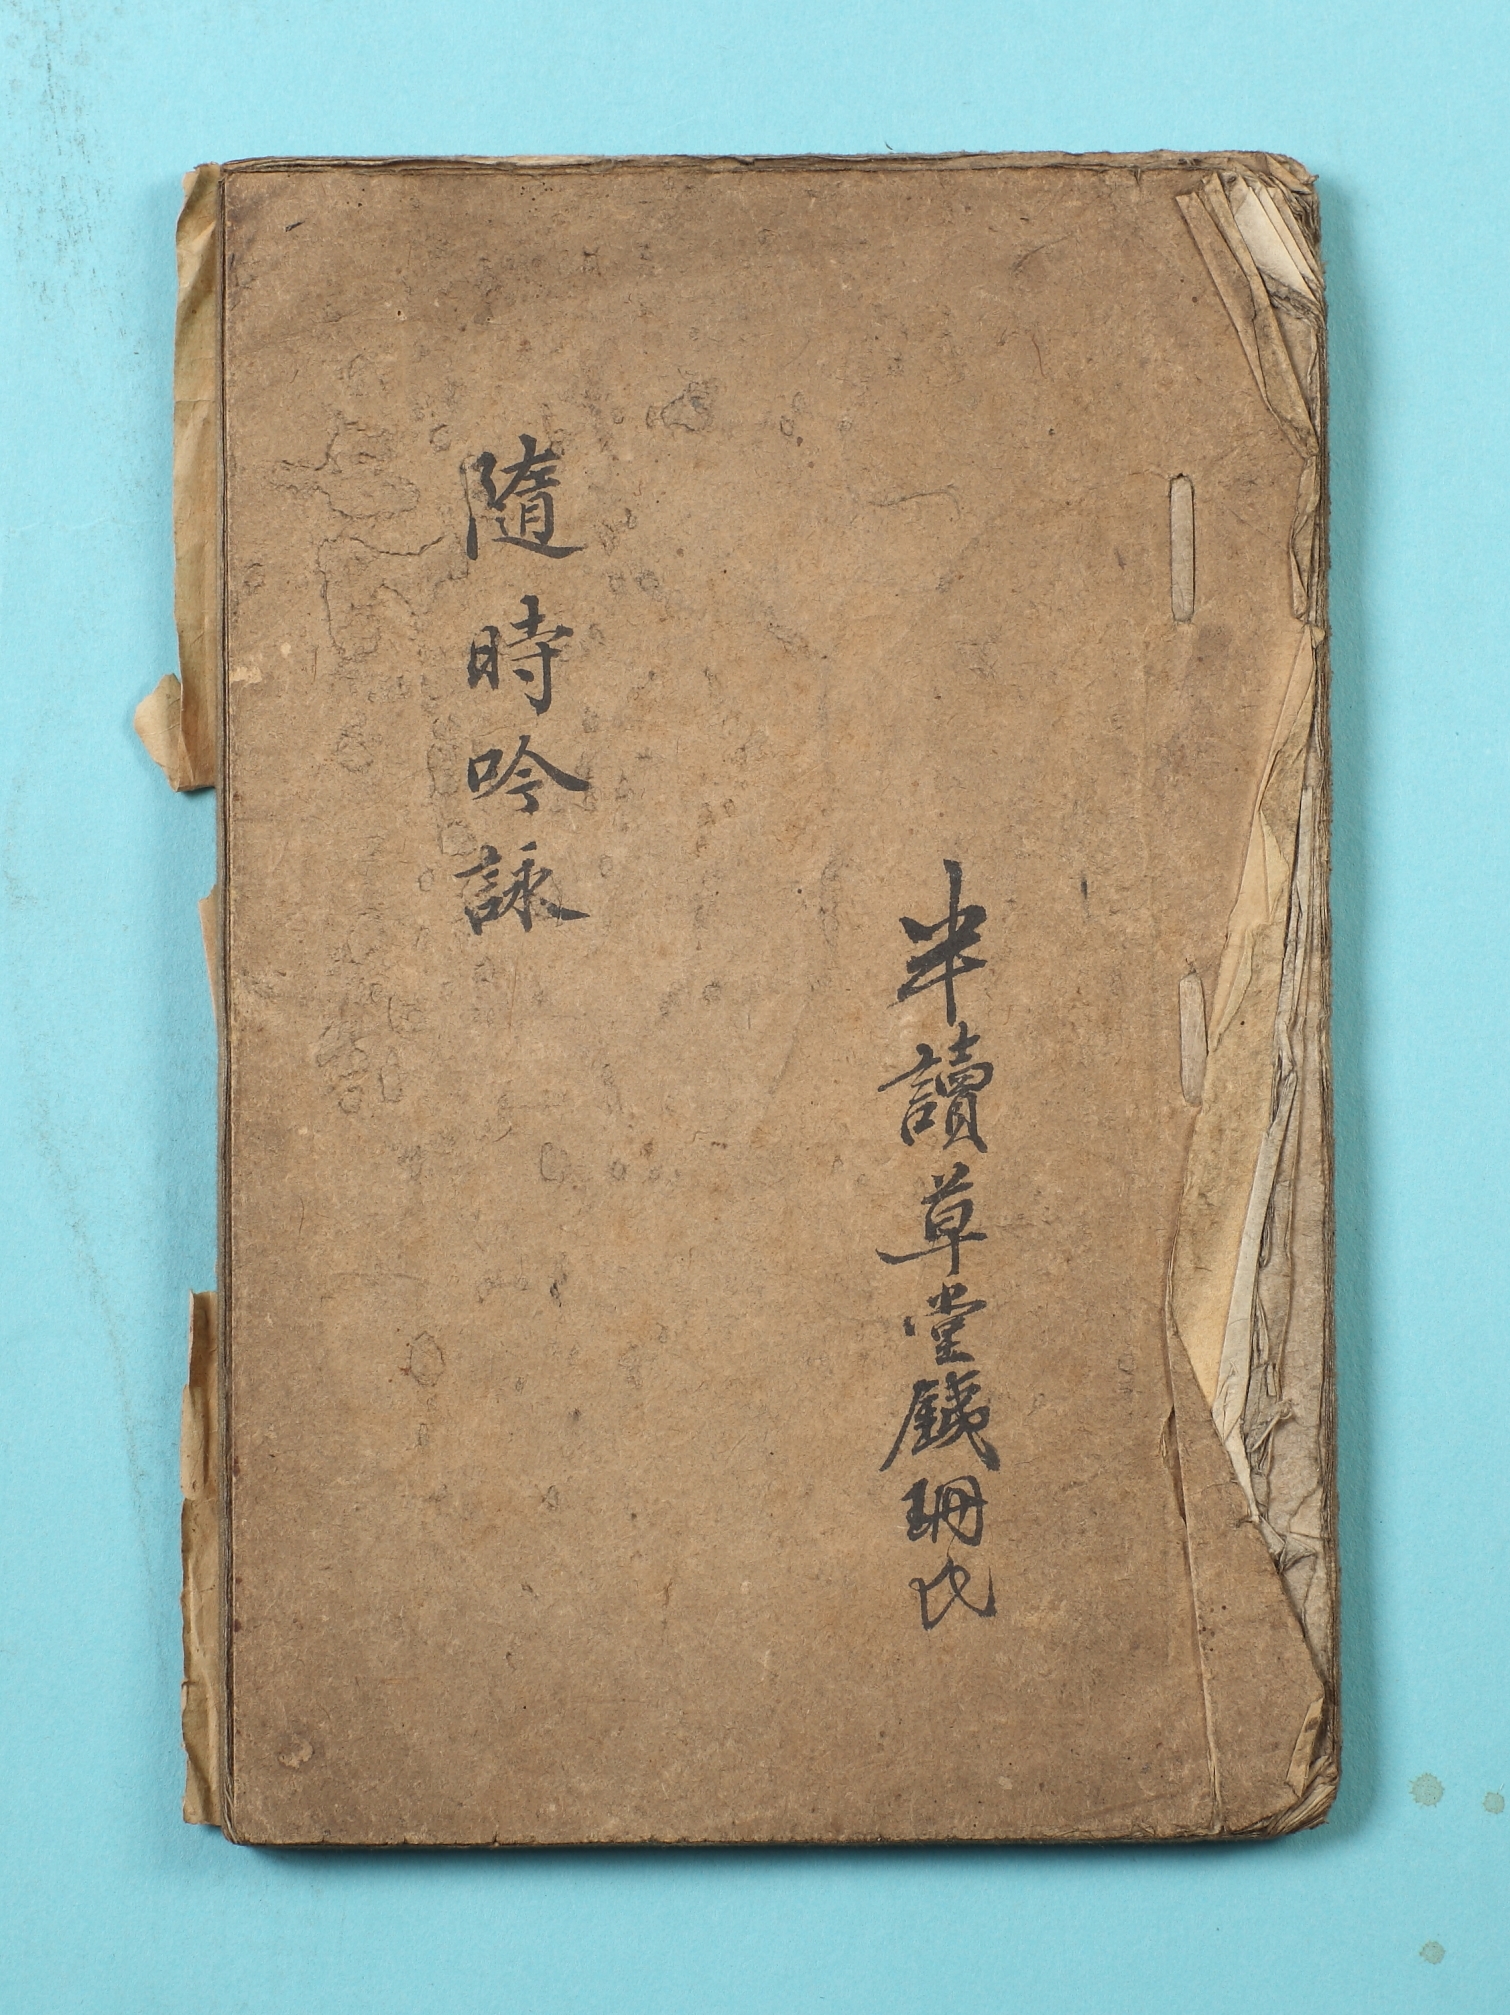 半讀草堂鐵珊氏
隨時吟詠